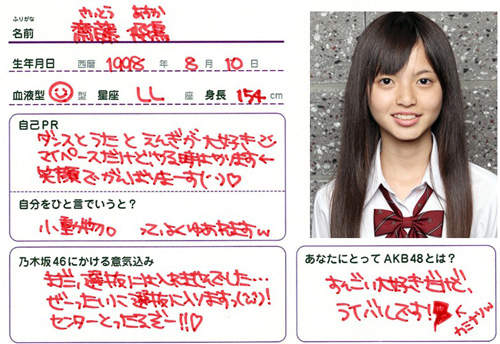 ふりがな さいとう あすか
名前 齋藤 飛鳥
生年月日 西暦 1998 年 8 月 10 日
血液型 型 星座 LL 座 身長 154 cm
自己PR
ダンスとうたとえんぎが大好き
マイペースだけどやる時はやります
笑顔でがんばりまーす(･･)♡
自分をひと言でいうと?
小動物。 ってよくゆわれますw
乃木坂46にかける意気込み
まだ、選抜には入れませんでした…
ぜーったいに選抜に入りますっ
センターとったるぞー!!♡
あなたにとってAKB48とは?
すんごい大好きだけど、
ライバルです!
←カミナリw